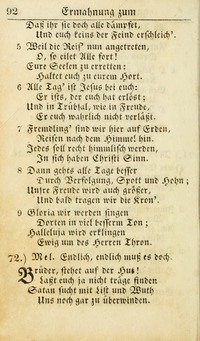 92 Ermahnung zum
Daß ihr sie doch alle dämpfet,
Und euch keins der Feind erschleich'.
5 Weil die Reis' nun angetreten,
O, so eilet Alle fort!
Eure Seelen zu erretten:
Haltet euch zu eurem Hort.
6 Alle Tag' ist Jesus bei euch:
Er ists, der euch hat erlöst;
Und in Trübsal, wie in Freude,
Er euch wahrlich nicht verläßt.
7 Fremdling' sind wir hier auf Erden,
Reisen nach dem Himmel hin.
Jedes soll recht himmlisch werden,
In sich haben Christi Sinn.
8 Dann gehts alle Tage besser
Durch Verfolgung, Spott und Hohn;
Unsre Freude wird auch größer,
Und bald tragen wir die Kron'.
9 Gloria wir werden singen
Dorten in viel besserm Ton;
Halleluja wird erklingen
Ewig um des Herren Thron.
72.) Mel. Endlich, endlich muß es doch.
Brüder, stehet auf der Hut!
Laßt euch ja nicht träge finden
Satan sucht mit List und Wuth
Uns noch gar zu überwinden.